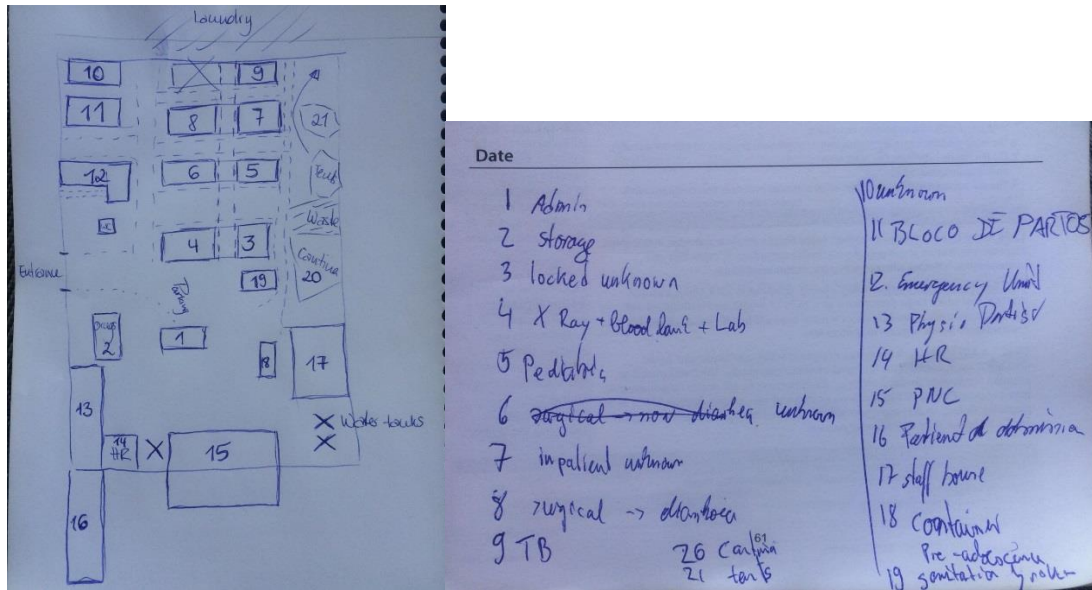 Laundry
10
9
11
8
7
21
12
6
5
Tent
WC
Waste
4
3
Cantina
20
Entrance
19
Parking
2
1
18
17
13
Water tanks
14
HR
15
16
Date
1 Admin
2 storage
3 locked unknown
4 X Ray + Blood bank + Lab
5 Pediatric
6 surgical → now diarrhea unknown
7 inpatient unknown
8 surgical → diarrhoea
9 TB
61
26 Cantina
21 tents
10 unknown
11 BLOCO DE PARTOS
12. Emergency Unit
13 Physio Dentist
14 HR
15 PNC
16 Patient
17 staff house
18 container
19